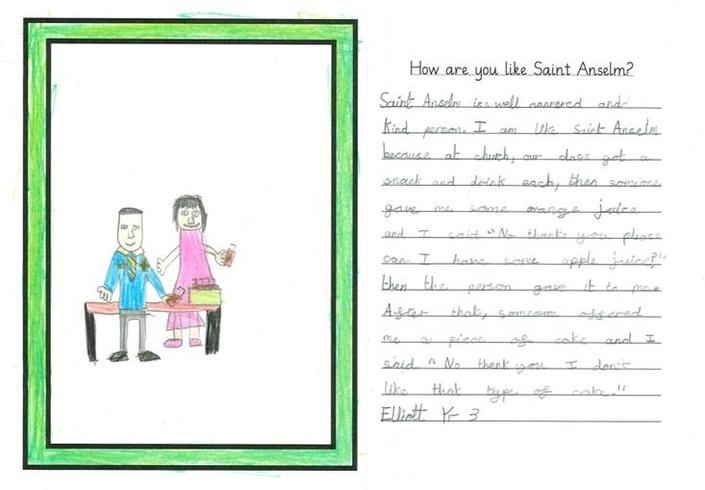 How are you like Saint Anselm?
Saint Anselm is a well mannered and
kind person. I am like Saint Anselm
because at church, our class got a
snack and drink each, then someone
gave me some orange juice
and I said "No thanks you please
can I have some apple juice?"
then the person gave it to me
After that, someone offered
me a piece of cake and I
said "No thank you I don't
like that type of cake."
Elliott Yr 3